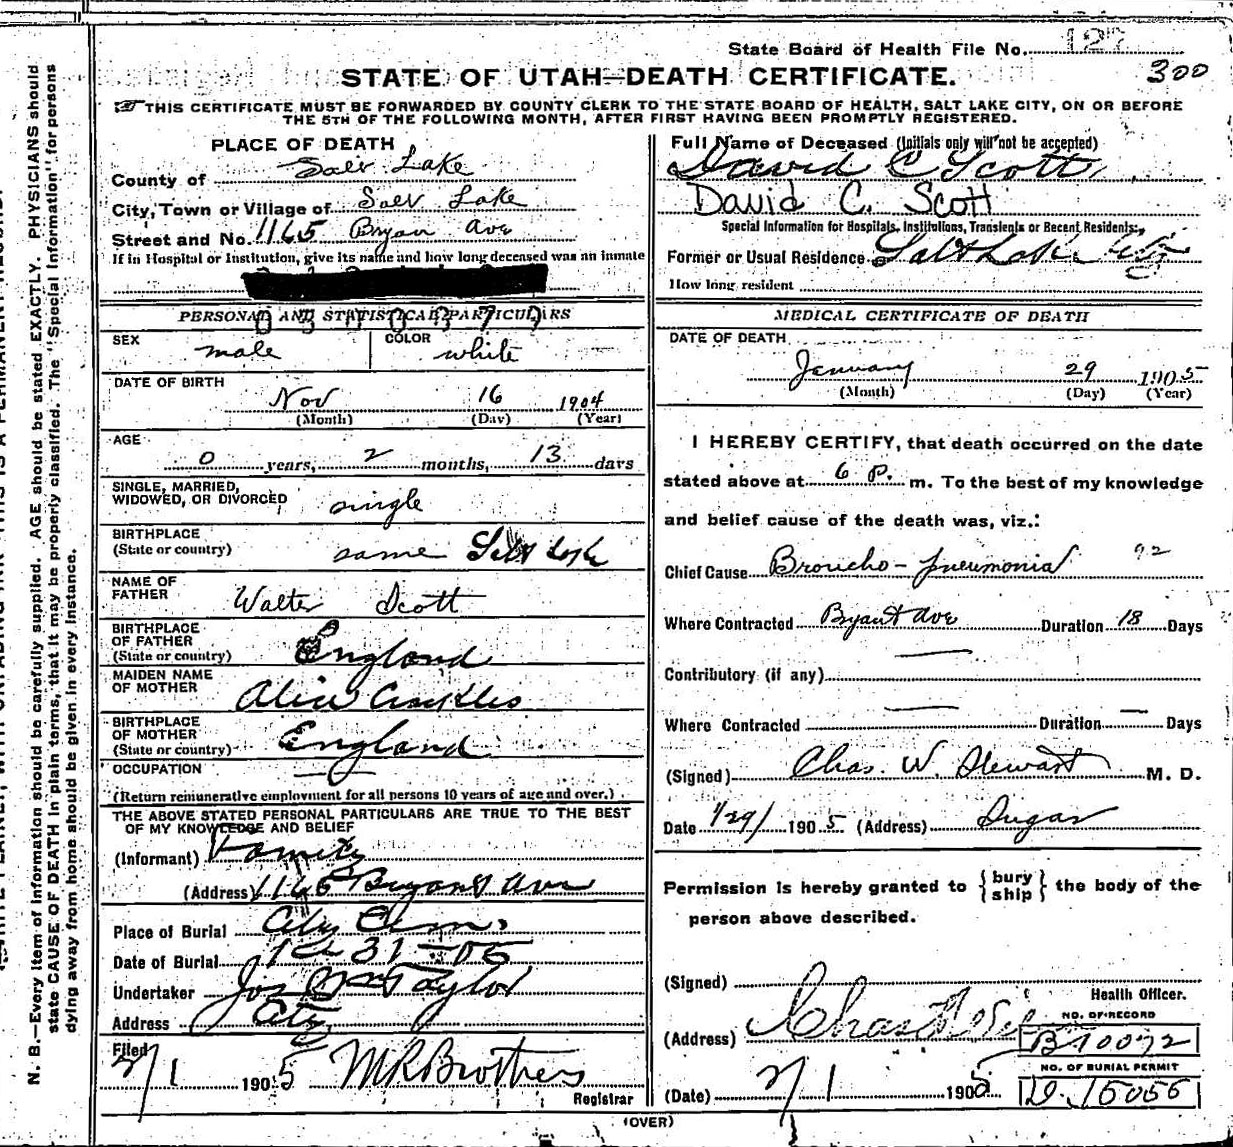 State Board of Health File No. 127
300
STATE OF UTAH—DEATH CERTIFICATE.
THIS CERTIFICATE MUST BE FORWARDED BY COUNTY CLERK TO THE STATE BOARD OF HEALTH, SALT LAKE CITY, ON OR BEFORE
THE 5TH OF THE FOLLOWING MONTH, AFTER FIRST HAVING BEEN PROMPTLY REGISTERED.
PLACE OF DEATH
County of Salt Lake
City, Town or Village of Salt Lake
Street and No. 1165 Bryan Ave
If in Hospital or Institution, give its name and how long deceased was an inmate
PERSONAL AND STATISTICAL PARTICULARS
SEX male COLOR white
DATE OF BIRTH
Nov 16 1904
(Month) (Day) (Year)
AGE
0 years, 2 months, 13 days
SINGLE, MARRIED,
WIDOWED, OR DIVORCED single
BIRTHPLACE
(State or country) same Salt Lake
NAME OF
FATHER Walter Scott
BIRTHPLACE
OF FATHER
(State or country) England
MAIDEN NAME
OF MOTHER Alice Crackles
BIRTHPLACE
OF MOTHER
(State or country) England
OCCUPATION
(Return remunerative employment for all persons 10 years of age and over.)
THE ABOVE STATED PERSONAL PARTICULARS ARE TRUE TO THE BEST
OF MY KNOWLEDGE AND BELIEF
(Informant) Family
(Address) 1165 Bryant Ave
Place of Burial City Cem.
Date of Burial 31-05
Undertaker Jos Wm Taylor
Address City
Filed 2/1 1905 M R Brothers
Registrar
Full Name of Deceased (Initials only will not be accepted)
David C Scott
David C. Scott
Special Information for Hospitals, Institutions, Transients or Recent Residents:
Former or Usual Residence Salt Lake City
How long resident
MEDICAL CERTIFICATE OF DEATH
DATE OF DEATH
January 29 1905
(Month) (Day) (Year)
I HEREBY CERTIFY, that death occurred on the date
stated above at 6 P. m. To the best of my knowledge
and belief cause of the death was, viz.:
Chief Cause Broncho-pneumonia 92
Where Contracted Bryant Ave Duration 18 Days
Contributory (if any) —
Where Contracted — Duration — Days
(Signed) Chas. W. Stewart M. D.
Date 1/29/ 1905 (Address) Sugar
Permission is hereby granted to {bury
ship} the body of the
person above described.
(Signed)
Health Officer.
(Address) Chas
NO. OF RECORD
B10092
NO. OF BURIAL PERMIT
D.15056
(Date) 2/1 1905
(OVER)
N. B.—Every item of information should be carefully supplied. AGE should be stated EXACTLY. PHYSICIANS should
state CAUSE OF DEATH in plain terms, that it may be properly classified. The "Special Information" for persons
dying away from home should be given in every instance.